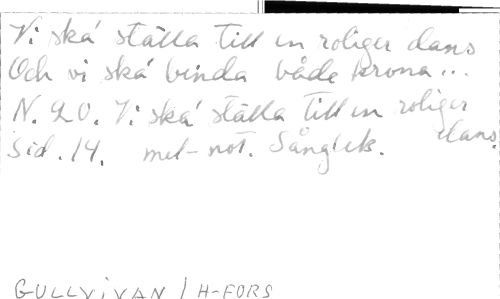 Vi ska' ställa till en roliger dans
Och vi ska' binda både krona...
N. 20. Vi ska' ställa till en roliger dans.
Sid. 14. mel-not. Sånglek.
GULLVIVAN / H-FORS